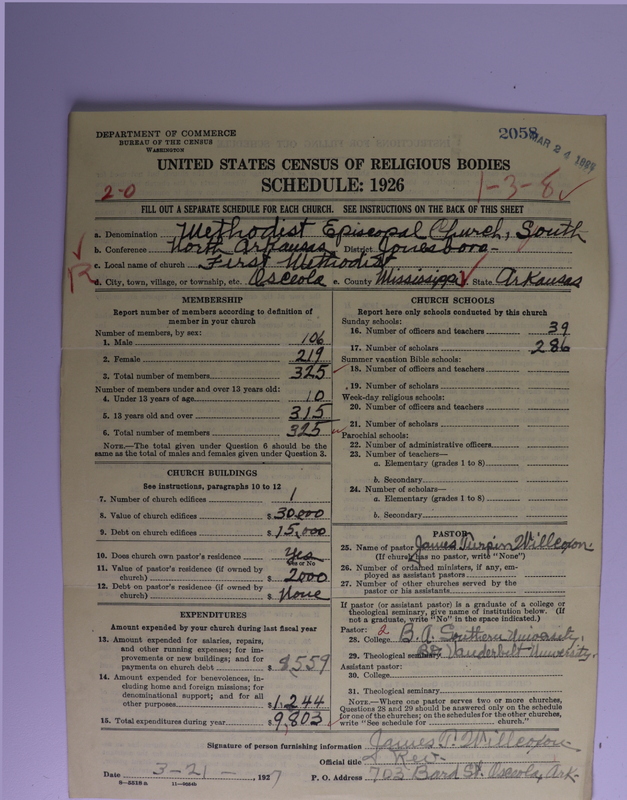 DEPARTMENT OF COMMERCE
BUREAU OF THE CENSUS
WASHINGTON
2058
MAR 24
UNITED STATES CENSUS OF RELIGIOUS BODIES
SCHEDULE: 1926
2-0
1-3-8
FILL OUT A SEPARATE SCHEDULE FOR EACH CHURCH. SEE INSTRUCTIONS ON THE BACK OF THIS SHEET
a. Denomination Methodist Episcopal Church, South
b. Conference North Arkansas District Jonesboro
c. Local name of church First Methodist
R
d. City, town, village, or township, etc. Osceola e. County Mississippi State Arkansas
MEMBERSHIP
Report number of members according to definition of
member in your church
Number of members, by sex:
1. Male 106
2. Female 219
3. Total number of members 325
Number of members under and over 13 years old:
4. Under 13 years of age 10
5. 13 years old and over 315
6. Total number of members 325
NOTE.—The total given under Question 6 should be the
same as the total of males and females given under Question 3.
CHURCH BUILDINGS
See instructions, paragraphs 10 to 12
7. Number of church edifices 1
8. Value of church edifices $30,000
9. Debt on church edifices $15,000
10. Does church own pastor's residence Yes
Yes or No
11. Value of pastor's residence (if owned by
church) $2000
12. Debt on pastor's residence (if owned by
church) $None
EXPENDITURES
Amount expended by your church during last fiscal year
13. Amount expended for salaries, repairs,
and other running expenses; for im-
provements or new buildings; and for
payments on church debt $8559
14. Amount expended for benevolences, in-
cluding home and foreign missions; for
denominational support; and for all
other purposes $1,244
15. Total expenditures during year $9,803
CHURCH SCHOOLS
Report here only schools conducted by this church
Sunday schools:
16. Number of officers and teachers 39
17. Number of scholars 286
Summer vacation Bible schools:
18. Number of officers and teachers
19. Number of scholars
Week-day religious schools:
20. Number of officers and teachers
21. Number of scholars
Parochial schools:
22. Number of administrative officers
23. Number of teachers—
a. Elementary (grades 1 to 8)
b. Secondary
24. Number of scholars—
a. Elementary (grades 1 to 8)
b. Secondary
PASTOR
25. Name of pastor James Turpin Willcoxon
(If church has no pastor, write "None")
26. Number of ordained ministers, if any, em-
ployed as assistant pastors
27. Number of other churches served by the
pastor or his assistants
If pastor (or assistant pastor) is a graduate of a college or
theological seminary, give name of institution below. (If
not a graduate, write "No" in the space indicated.)
Pastor: 2
28. College B.A. Southern University
29. Theological seminary BD Vanderbilt University.
Assistant pastor:
30. College
31. Theological seminary
NOTE.—Where one pastor serves two or more churches,
Questions 28 and 29 should be answered only on the schedule
for one of the churches; on the schedules for the other churches,
write "See schedule for church."
Signature of person furnishing information James T. Willcoxon
Official title Rev.
Date 3-21- 1927 P. O. Address 703 Bard St. Osceola, Ark-
8-5518a 11-9264b